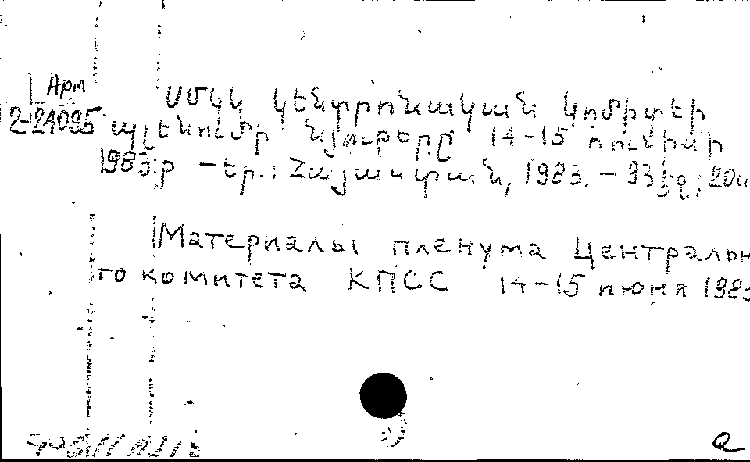 Арт
2-24095
ՍՄԿԿ կենտրոնական կոմիտեի
պլենումի նյութերը 14-15 հունիսի
1983թ. - Եր.: Հայաստան, 1983. - 93 էջ, 20
Материалы пленума Централь
го комитета КПСС 14-15 июня 1983